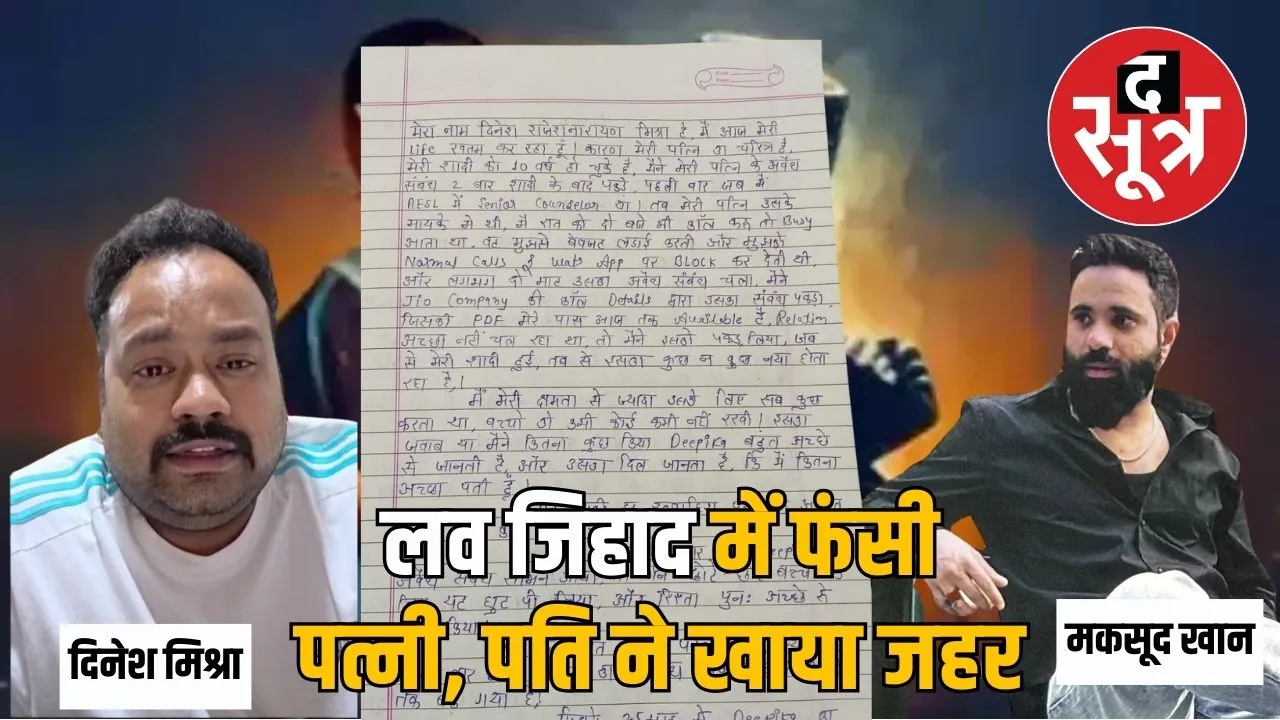 द
सूत्र
मेरा नाम दिनेश राजेशनारायण मिश्रा है, मैं आज मेरी
Life खत्म कर रहा हूँ। कारण मेरी पत्नि का चरित्र है,
मेरी शादी को 10 वर्ष हो चुके है, मैंने मेरी पत्नि के अवैध
संबंध 2 बार शादी के बाद पकडे, पहली बार जब मैं
AESL में Senior Counselor था। तब मेरी पत्नि उसके
मायके मे थी, मैं रात को दो बजे भी कॉल करू तो Busy
आता था, वह मुझसे बेवजह लडाई करती और मुझको
Normal Calls & Wats App पर BLOCK कर देती थी,
और लगभग दो माह उसका अवैध संबंध चला, मैंने
Jio Company की कॉल Details द्वारा उसका संबंध पकडा,
जिसकी PDF मेरे पास आज तक Available है, Relation
अच्छा नहीं चल रहा था, तो मैंने इसको पकड़ लिया, जब
से मेरी शादी हुई, तब से इसका कुछ न कुछ नया होता
रहा है।
मैं मेरी क्षमता से ज्यादा उसके लिए सब कुछ
करता था, बच्चो को कभी कोई कमी नहीं रखी। इसका
जवाब या मैंने कितना कुछ किया Deepika बहुत अच्छे
से जानती है, और उसका दिल जानता है, कि मैं कितना
अच्छा पती हूँ।
लव जिहाद में फंसी
यह घुट पी लिया, और रिश्ता पुनः अच्छे से
पत्नी, पति ने खाया जहर
दिनेश मिश्रा
मकसूद खान
गया है।
Deepika